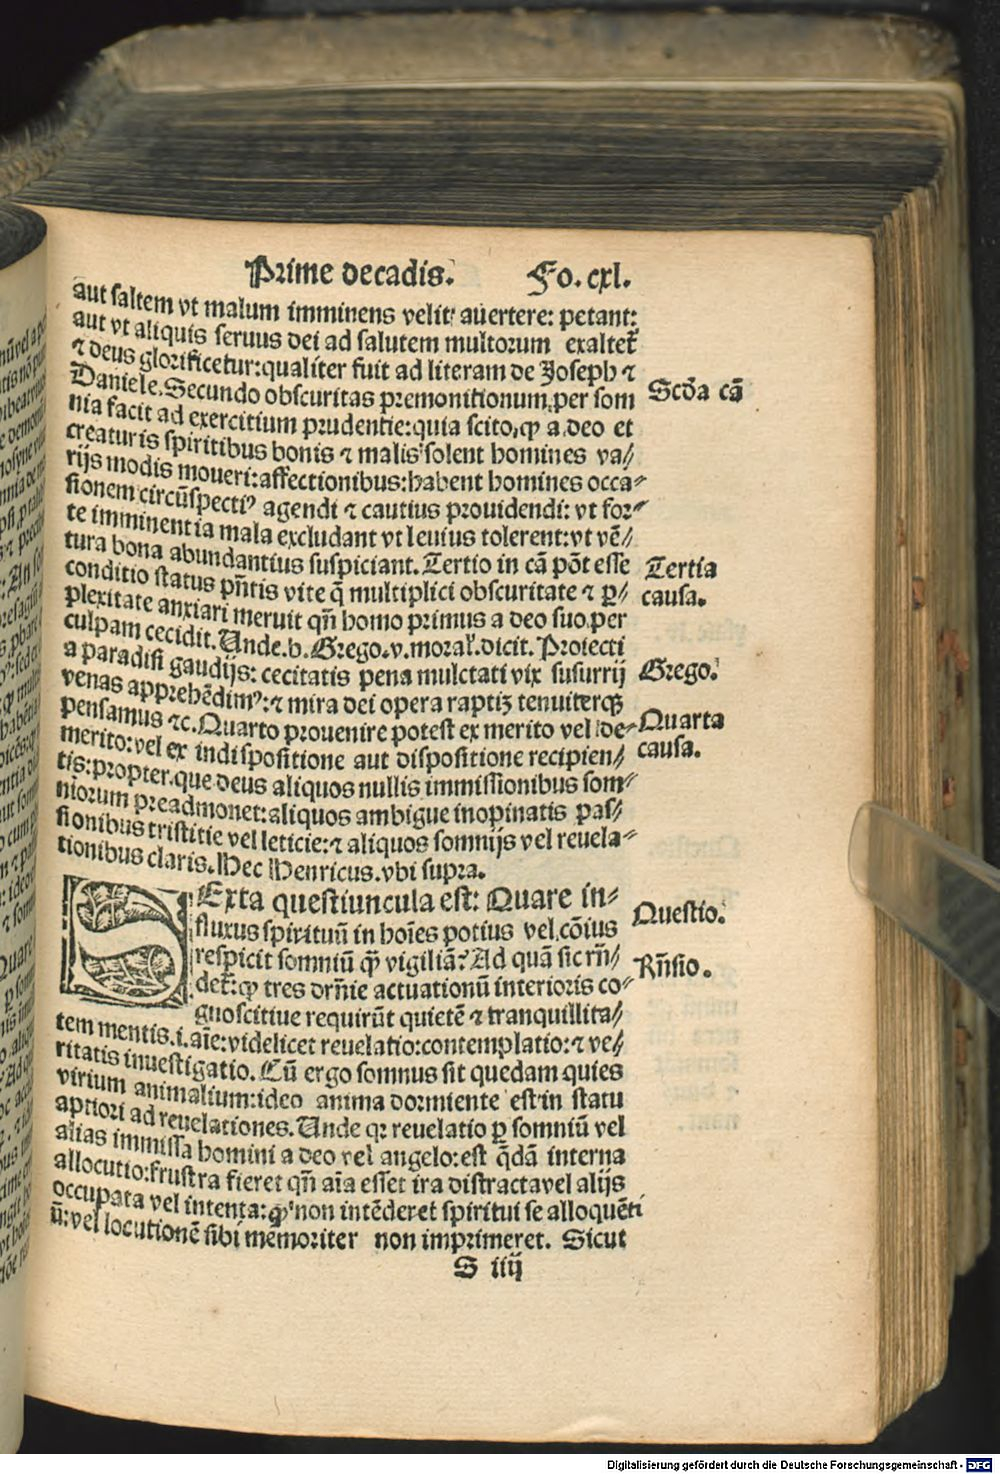 Prime decadis. Fo. cxl.
aut saltem vt malum imminens velit auertere: petant:
aut vt aliquis seruus dei ad salutem multorum exaltet̉
⁊ deus glorificetur: qualiter fuit ad literam de Joseph ⁊
Daniele. Secundo obscuritas premonitionum, per som
nia facit ad exercitium prudentie: quia scito, ꝙ a deo et
creaturis spiritibus bonis ⁊ malis solent homines va⸗
rijs modis moueri: affectionibus: habent homines occa⸗
sionem circūspectiꝰ agendi ⁊ cautius prouidendi: vt for⸗
te imminentia mala excludant vt leuius tolerent: vt vē⸗
tura bona abundantius suspiciant. Tertio in cā pōt esse
conditio status pn̄tis vite q̄ multiplici obscuritate ⁊ ꝑ⸗
plexitate anxiari meruit qn̄ homo primus a deo suo per
culpam cecidit. Unde .b. Grego. v. moral̉. dicit. Proiecti
a paradisi gaudijs: cecitatis pena mulctati vix susurrij
venas apprehēdimꝰ: ⁊ mira dei opera raptiꝫ tenuiterqꝫ
pensamus ⁊c. Quarto prouenire potest ex merito vel de⸗
merito: vel ex indispositione aut dispositione recipien⸗
tis: propter que deus aliquos nullis immissionibus som⸗
niorum preadmonet: aliquos ambigue inopinatis pas⸗
sionibus tristitie vel leticie: ⁊ aliquos somnijs vel reuela⸗
tionibus claris. Hec Henricus. vbi supra.
SExta questiuncula est: Quare in⸗
fluxus spirituū in hoīes potius vel cōius
respicit somniū ꝙ̄ vigiliā? Ad quā sic rn̄⸗
det̉: ꝙ tres orn̄ie actuationū interioris co⸗
gnoscitiue requirūt quietē ⁊ tranquillita⸗
tem mentis .i. aīe: videlicet reuelatio: contemplatio: ⁊ ve⸗
ritatis inuestigatio. Cū ergo somnus sit quedam quies
virium animalium: ideo anima dormiente est in statu
aptiori ad reuelationes. Unde qꝛ reuelatio ꝑ somniū vel
alias immissa homini a deo vel angelo: est q̄dā interna
allocutio: frustra fieret qn̄ aīa esset ita distracta vel alijs
occupata vel intenta: non intēderet spiritui se alloquēti
ū: vel locutionē sibi memoriter non imprimeret. Sicut
S iiij
Scd̄a cā
Tertia
causa.
Grego.
Quarta
causa.
Questio.
Rn̄sio.
Digitalisierung gefördert durch die Deutsche Forschungsgemeinschaft - DFG